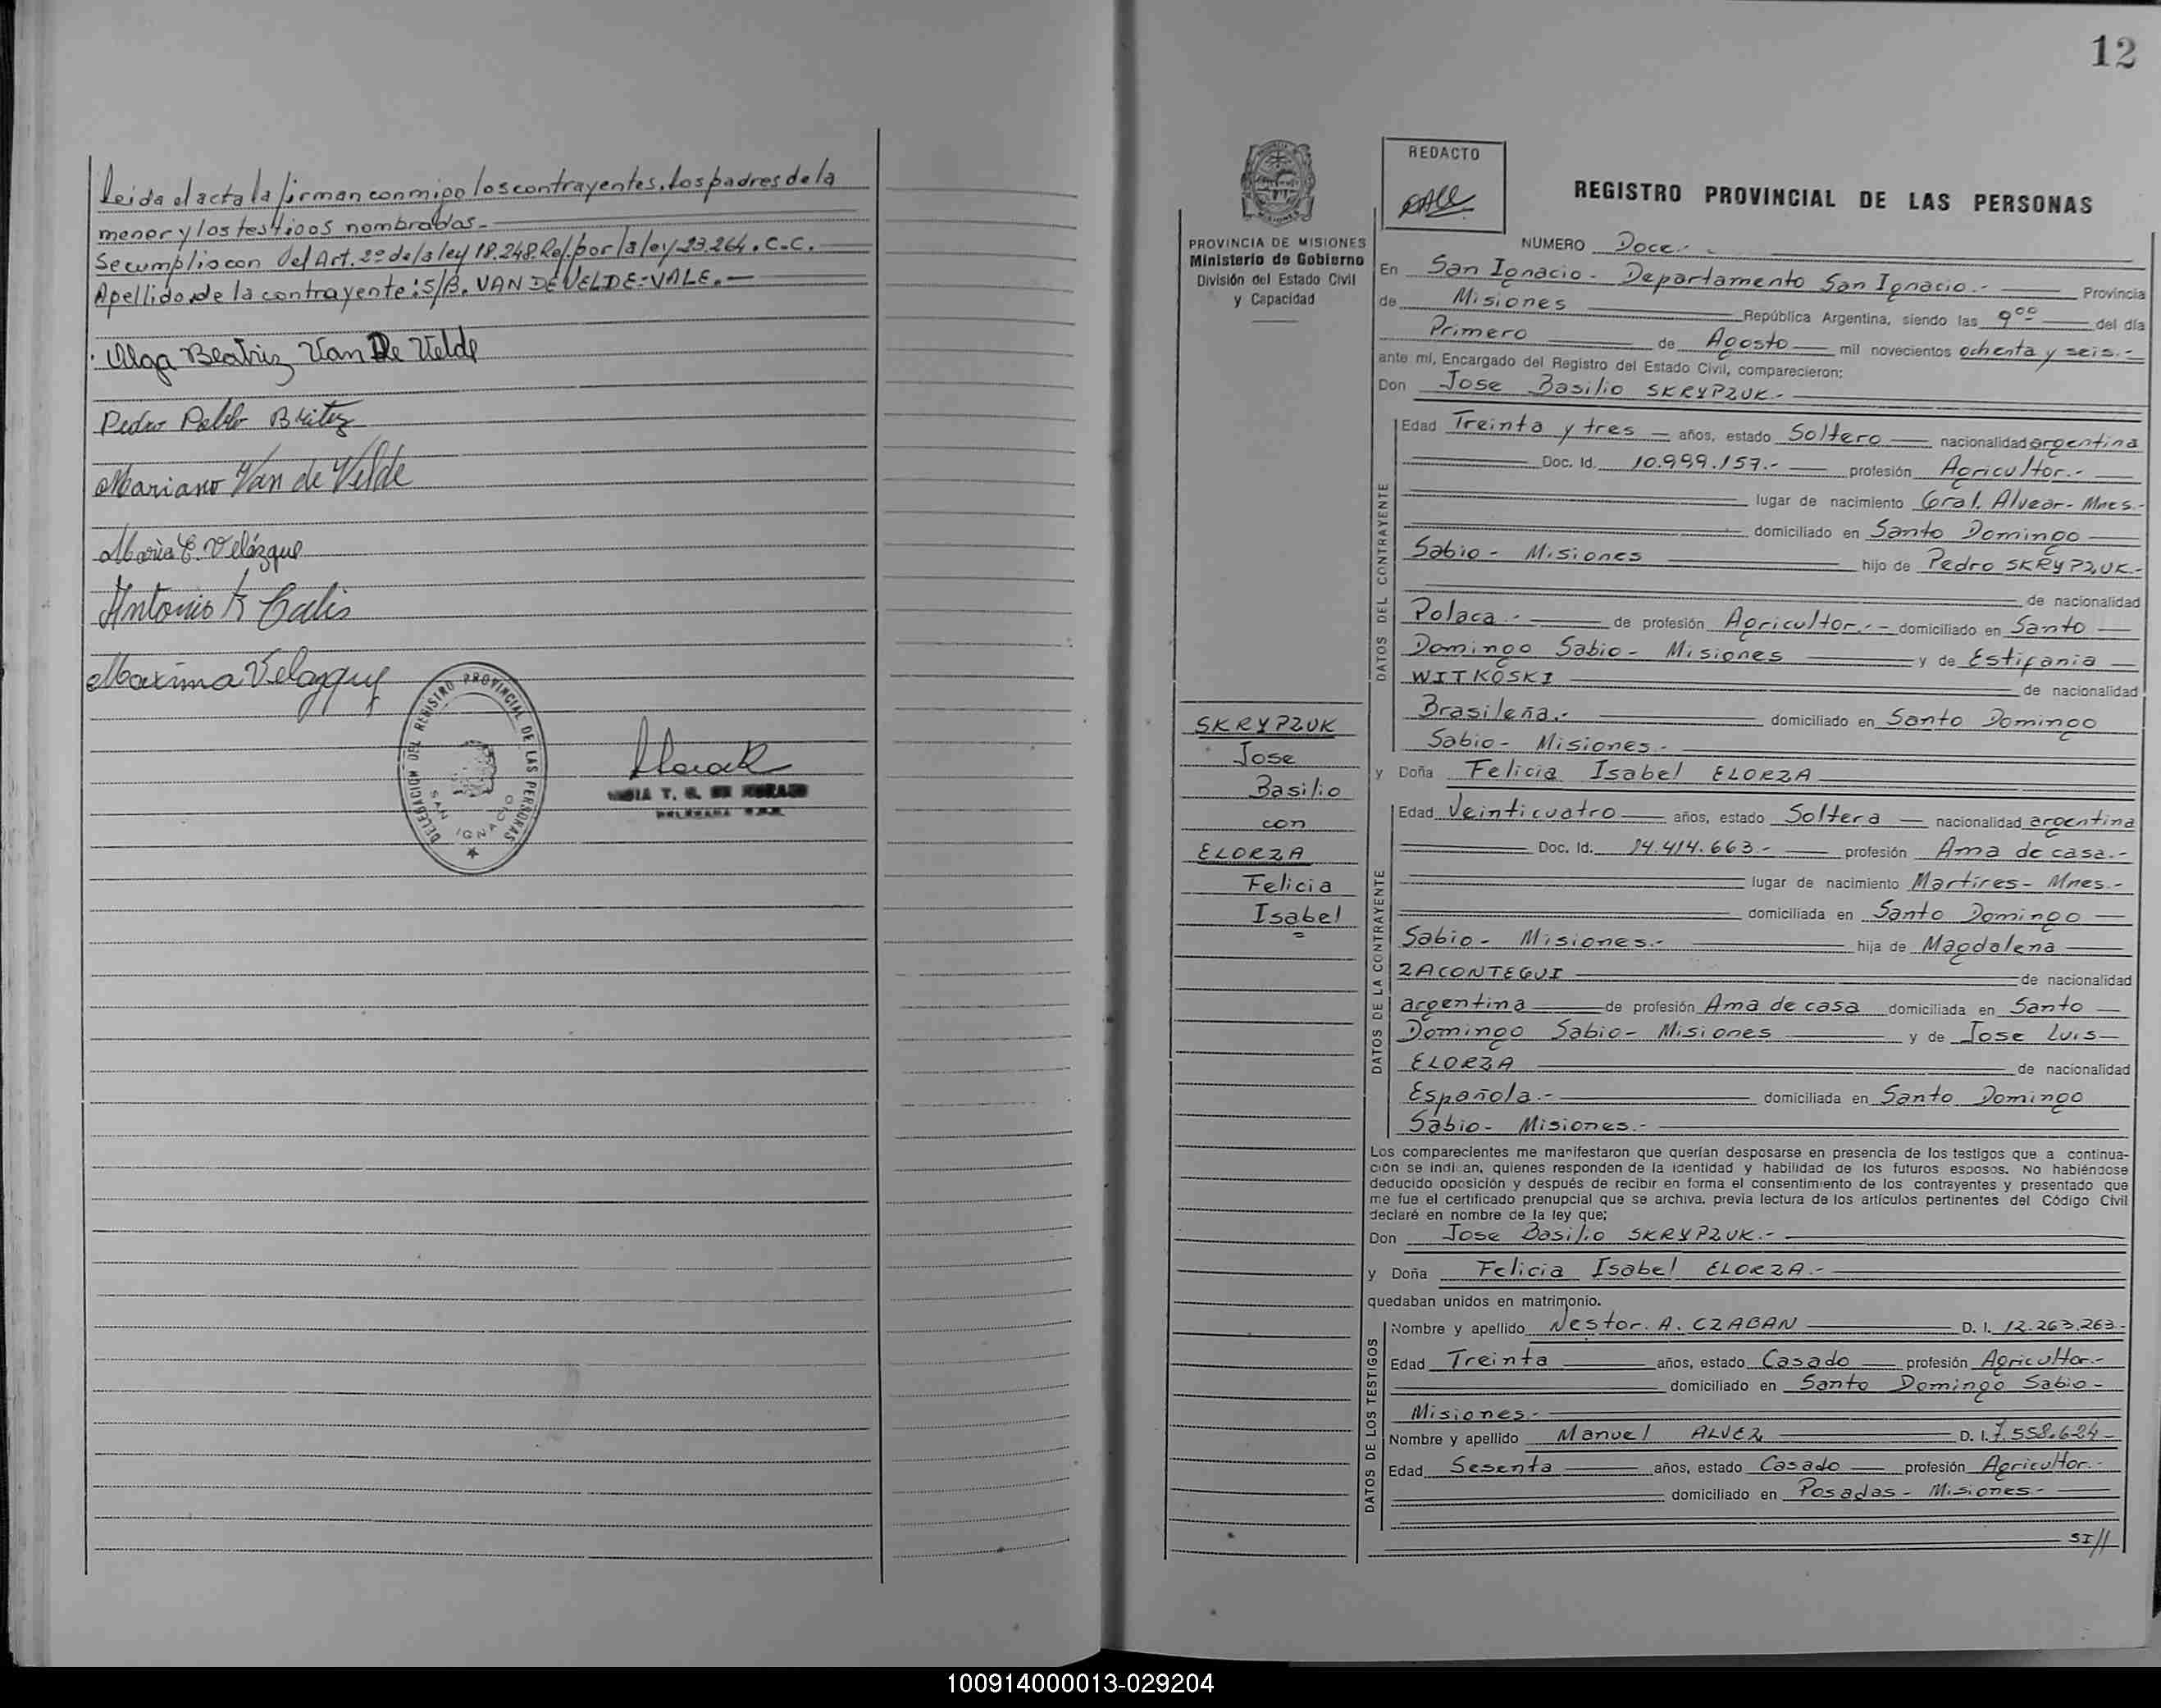 leida el acta la firman conmigo los contrayentes, los padres de la
menor y los testigos nombrados.-
Se cumplio con del Art. 2º de la ley 18.248. Ref. por la ley 23.264. C.C.
Apellido de la contrayente: S/B. VAN DE VELDE-VALE.-
Olga Beatriz Van De Velde
Pedro Pablo Britez
Mariano Van de Velde
Maria C. Velázque
Antonio
Maxima Velazquez
DELEGACION DEL REGISTRO PROVINCIAL DE LAS PERSONAS
SAN IGNACIO
12
PROVINCIA DE MISIONES
Ministerio de Gobierno
División del Estado Civil
y Capacidad
SKRYPZUK
Jose
Basilio
con
ELORZA
Felicia
Isabel
REDACTO
REGISTRO PROVINCIAL DE LAS PERSONAS
NUMERO Doce.-
En San Ignacio - Departamento San Ignacio.- Provincia
de Misiones República Argentina, siendo las 9ºº del día
Primero de Agosto mil novecientos ochenta y seis.-
ante mí, Encargado del Registro del Estado Civil, comparecieron:
Don Jose Basilio SKRYPZUK.-
DATOS DEL CONTRAYENTE
Edad Treinta y tres años, estado Soltero nacionalidad argentina
Doc. Id. 10.999.157.- profesión Agricultor.-
lugar de nacimiento Gral. Alvear - Mnes.-
domiciliado en Santo Domingo
Sabio - Misiones hijo de Pedro SKRYPZUK.-
de nacionalidad
Polaca.- de profesión Agricultor.- domiciliado en Santo
Domingo Sabio - Misiones y de Estifania
WITKOSKI de nacionalidad
Brasileña.- domiciliado en Santo Domingo
Sabio - Misiones.-
y Doña Felicia Isabel ELORZA
DATOS DE LA CONTRAYENTE
Edad Veinticuatro años, estado Soltera nacionalidad argentina
Doc. Id. 14.414.663.- profesión Ama de casa.-
lugar de nacimiento Martires - Mnes.-
domiciliada en Santo Domingo
Sabio - Misiones.- hija de Magdalena
ZACONTEGUI de nacionalidad
argentina de profesión Ama de casa domiciliada en Santo
Domingo Sabio - Misiones y de Jose Luis
ELORZA de nacionalidad
Española.- domiciliada en Santo Domingo
Sabio - Misiones.-
Los comparecientes me manifestaron que querían desposarse en presencia de los testigos que a continua-
ción se indican, quienes responden de la identidad y habilidad de los futuros esposos. No habiéndose
deducido oposición y después de recibir en forma el consentimiento de los contrayentes y presentado que
me fue el certificado prenupcial que se archiva, previa lectura de los artículos pertinentes del Código Civil
declaré en nombre de la ley que;
Don Jose Basilio SKRYPZUK.-
y Doña Felicia Isabel ELORZA.-
quedaban unidos en matrimonio.
DATOS DE LOS TESTIGOS
Nombre y apellido Nestor. A. CZABAN D. I. 12.263.263.-
Edad Treinta años, estado Casado profesión Agricultor.-
domiciliado en Santo Domingo Sabio -
Misiones.-
Nombre y apellido Manuel ALVEZ D. I. 7.558.624.-
Edad Sesenta años, estado Casado profesión Agricultor.-
domiciliado en Posadas - Misiones.-
SI//
100914000013-029204